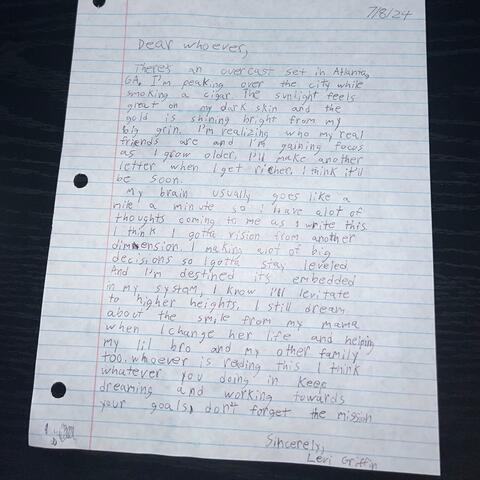 7/8/24
Dear whoever,
There's an overcast set in Atlanta,
GA, I'm peaking over the city while
smoking a cigar the sunlight feels
great on my dark skin and the
gold is shining bright from my
big grin. I'm realizing who my real
friends are and I'm gaining focus
as I grow older, I'll make another
letter when I get richer, I think it'll
be soon.
My brain usually goes like a
mile a minute so I have alot of
thoughts coming to me as I write this
I think I gotta vision from another
dimension. I making alot of big
decisions so I gotta stay leveled
And I'm destined it's embedded
in my system, I know I'll levitate
to higher heights. I still dream
about the smile from my mama
when I change her life and helping
my lil bro and my other family
too. whoever is reading this I think
whatever you doing in keep
dreaming and working towards
your goals, don't forget the mission
Sincerely,
Levi Griffin